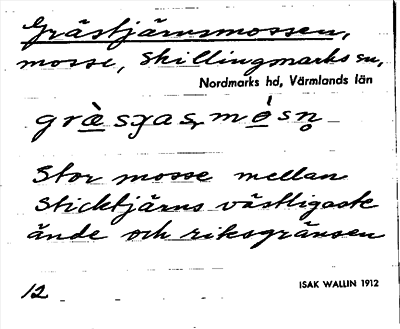 Grästjärnsmossen,
mosse, Skillingmarks sn,
Nordmarks hd, Värmlands län
Stor mosse mellan
Sticktjärns västligaste
ände och riksgränsen
12
ISAK WALLIN 1912